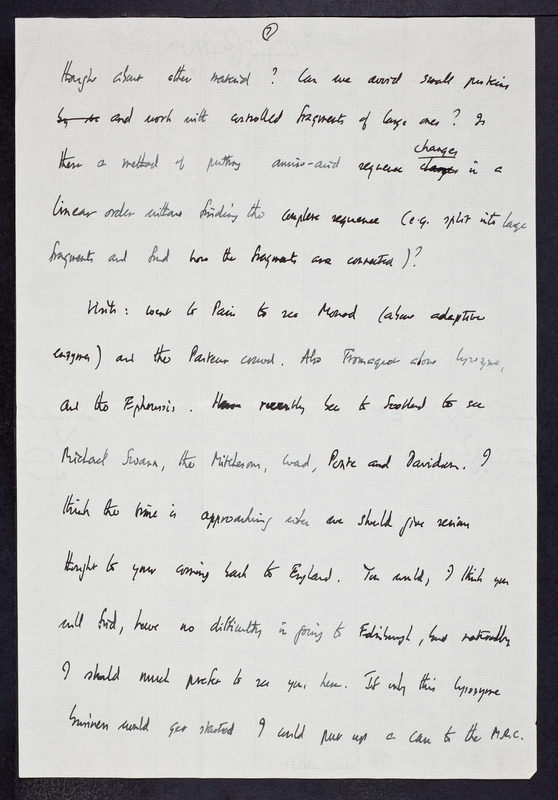 7
thought about other material? Can we avoid small proteins
by us and work with controlled fragments of large ones? Is
changes
there a method of putting amino-acid sequence changes in a
linear order without finding the complete sequence (e.g. split into large
fragments and find how the fragments are connected)?
Visits: went to Paris to see Monod (about adaptive
enzymes) and the Pasteur crowd. Also Fromageot about lysozyme,
and the Ephrussis. Have recently been to Scotland to see
Michael Swann, the Mitchisons, Wad, Pontecorvo and Davidson. I
think the time is approaching when we should give serious
thought to your coming back to England. You would, I think you
will find, have no difficulty in going to Edinburgh, but naturally
I should much prefer to see you here. If only this lysozyme
business would get started I could put up a case to the M.R.C.